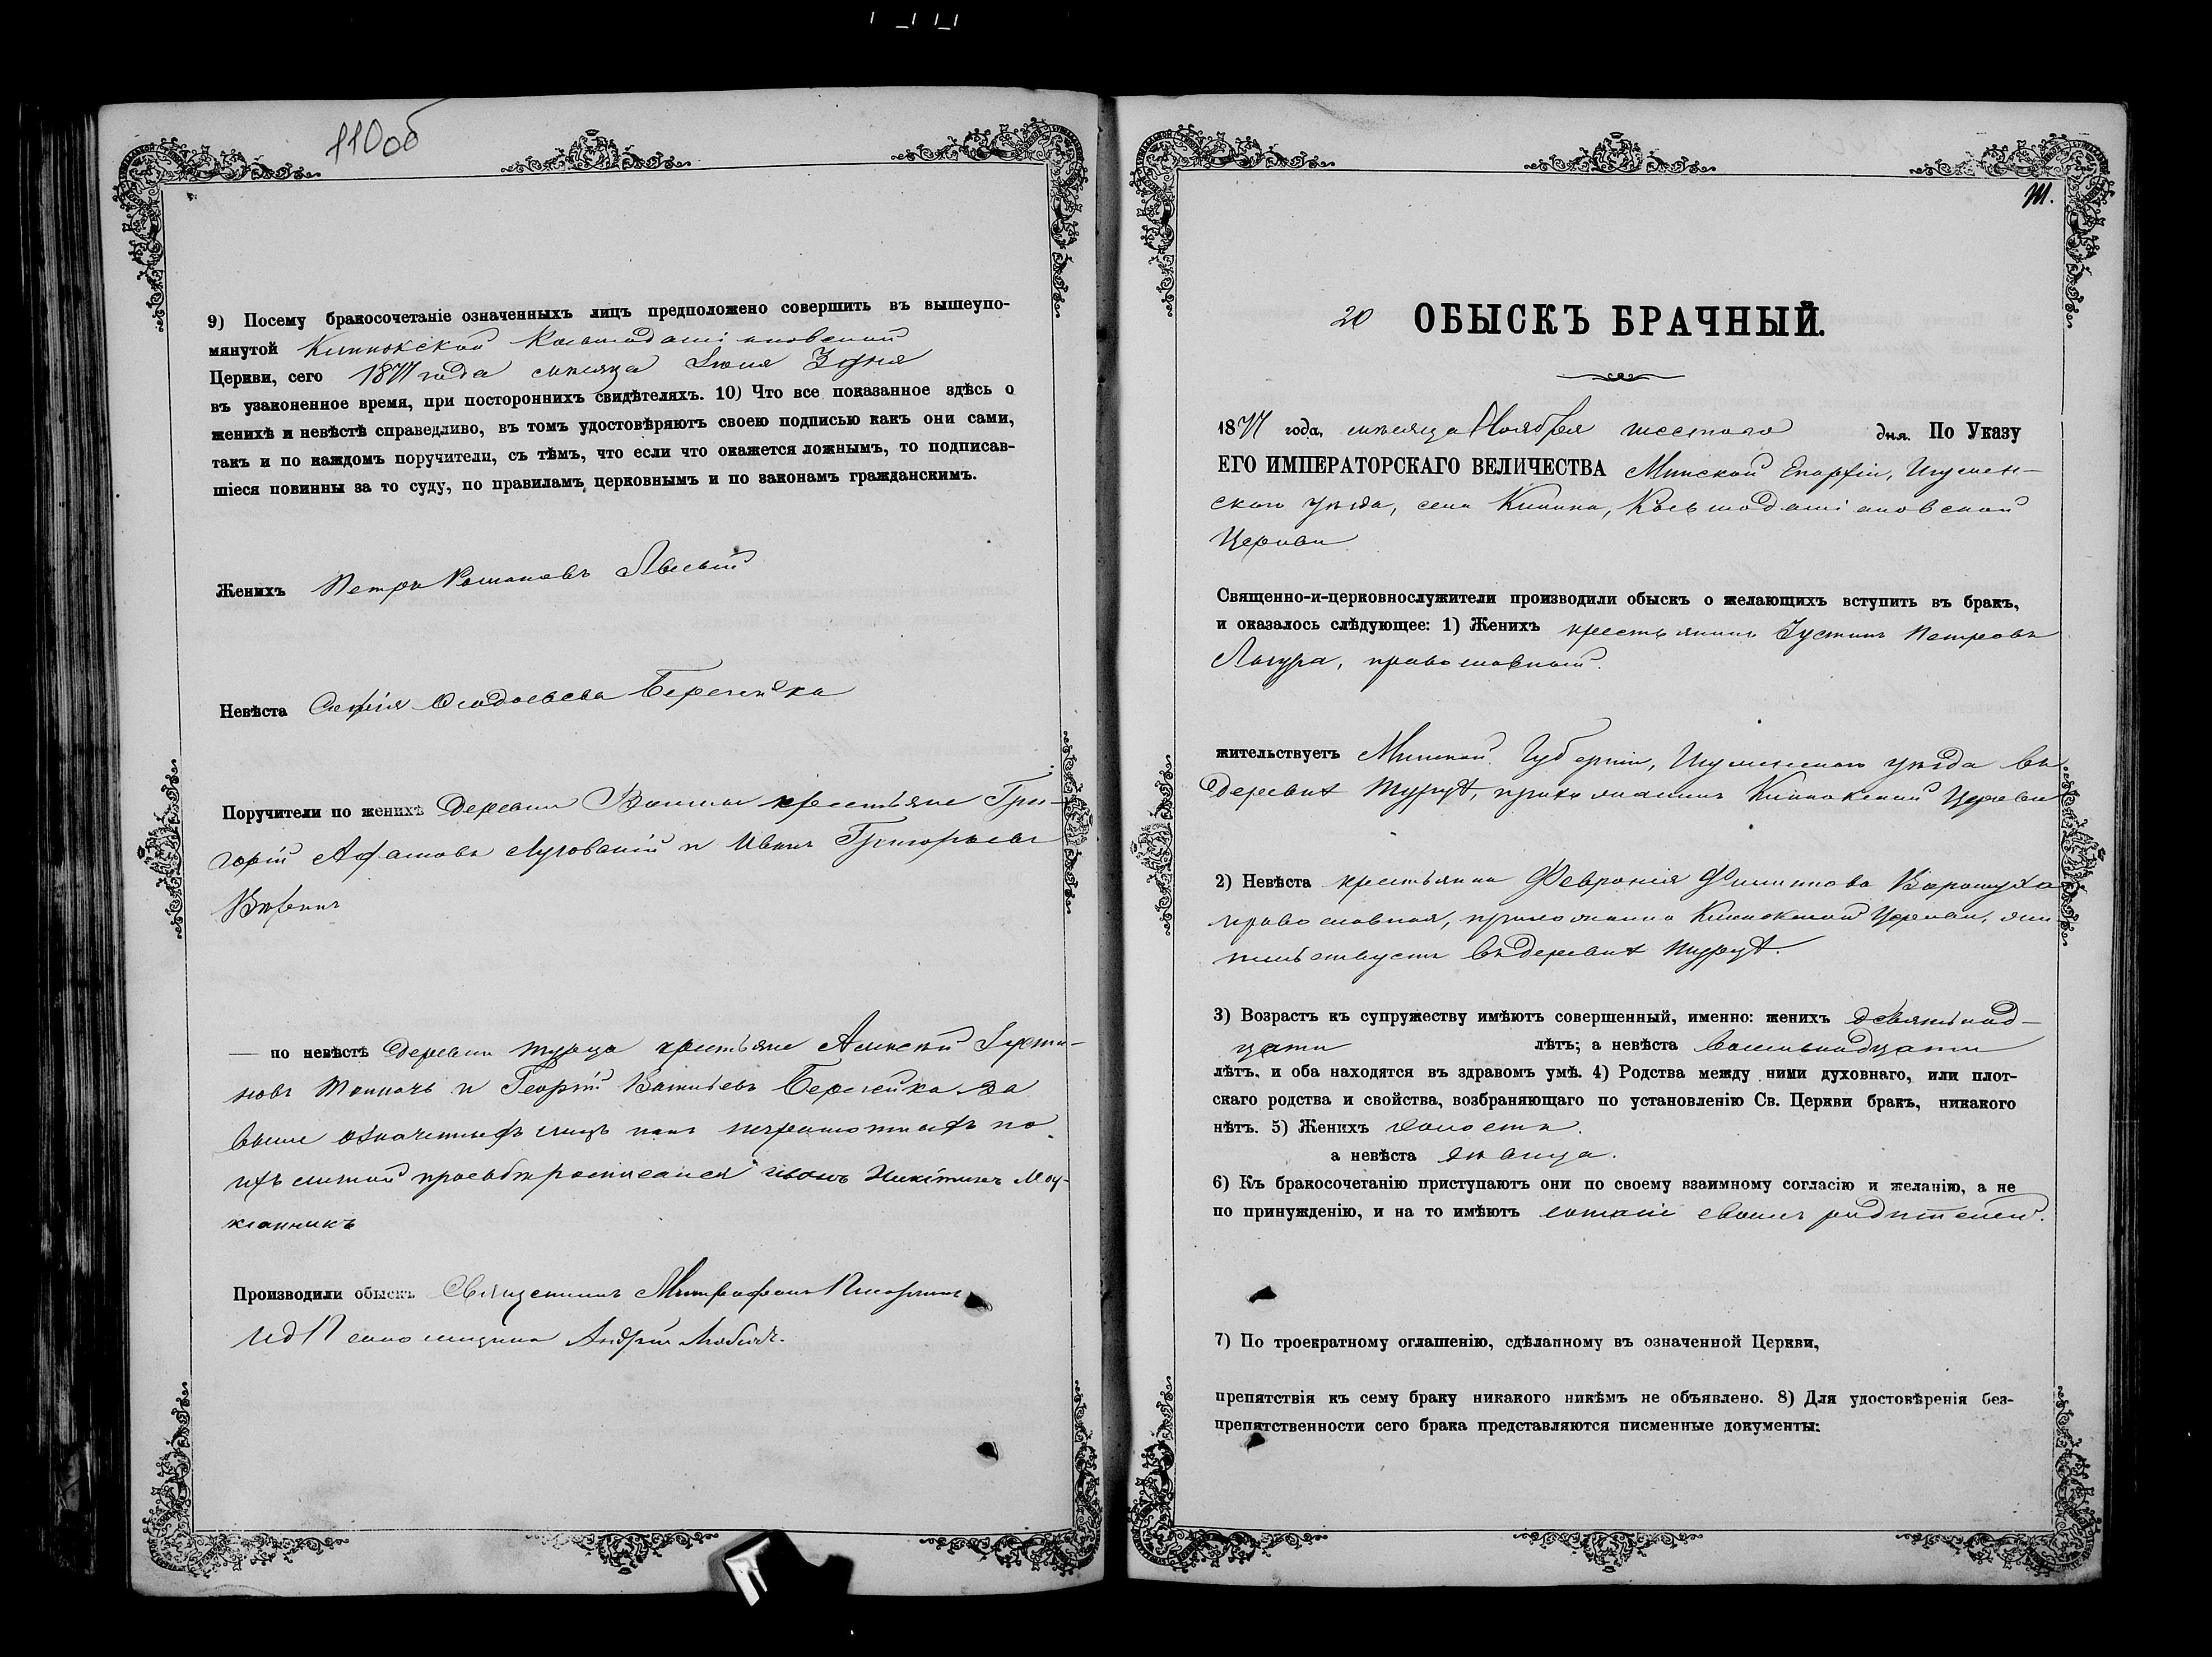 110об
9) Посему бракосочетаніе означенныхъ лицъ предположено совершить въ вышеупо-
мянутой Клинокской Косьмодаміановской
Церкви, сего 1871 года мѣсяца
въ узаконенное время, при постороннихъ свидѣтеляхъ. 10) Что все показанное здѣсь о
женихѣ и невѣстѣ справедливо, въ томъ удостовѣряютъ своею подписью какъ они сами,
такъ и по каждомъ поручители, съ тѣмъ, что если что окажется ложнымъ, то подписав-
шіеся повинны за то суду, по правиламъ церковнымъ и по законамъ гражданскимъ.
Женихъ Петръ Романовъ
Невѣста Софія Береснейка
Поручители по женихѣ деревни крестьяне Гри-
горій и Иванъ Григорьевъ
— по невѣстѣ деревни Турца крестьяне Алексѣй Іусти-
новъ и Георгій Васильевъ за
выше означенныхъ лицъ какъ неграмотныхъ по
ихъ личной просьбѣ росписался Иванъ Никитинъ
Производили обыскъ Священникъ Митрофанъ
ИдПсаломщика Андрей
111.
20 ОБЫСКЪ БРАЧНЫЙ.
1871 года, мѣсяца Ноября шестого дня. По Указу
ЕГО ИМПЕРАТОРСКАГО ВЕЛИЧЕСТВА Минской Епархіи, Игумен-
скаго уѣзда, села Клинка, Косьмодаміановской
Церкви
Священно-и-церковнослужители производили обыскъ о желающихъ вступить въ бракъ,
и оказалось слѣдующее: 1) Женихъ крестьянинъ Іустинъ Петровъ
православный.
жительствуетъ Минской Губерніи, Игуменскаго уѣзда въ
деревнѣ Турцѣ, прихожанинъ Клинокской Церкви
2) Невѣста крестьянка Февронія Филиппова
православная, прихожанка Клинокской Церкви, жи-
тельствуетъ въ деревнѣ Турцѣ.
3) Возрастъ къ супружеству имѣютъ совершенный, именно: женихъ девятнад-
цати лѣтъ; а невѣста восемьнадцати
лѣтъ, и оба находятся въ здравомъ умѣ. 4) Родства между ними духовнаго, или плот-
скаго родства и свойства, возбраняющаго по установленію Св. Церкви бракъ, никакого
нѣтъ. 5) Женихъ холостъ.
а невѣста дѣвица.
6) Къ бракосочетанію приступаютъ они по своему взаимному согласію и желанію, а не
по принужденію, и на то имѣютъ согласіе своихъ родителей.
7) По троекратному оглашенію, сдѣланному въ означенной Церкви,
препятствія къ сему браку никакого никѣмъ не объявлено. 8) Для удостовѣренія без-
препятственности сего брака представляются писменные документы: